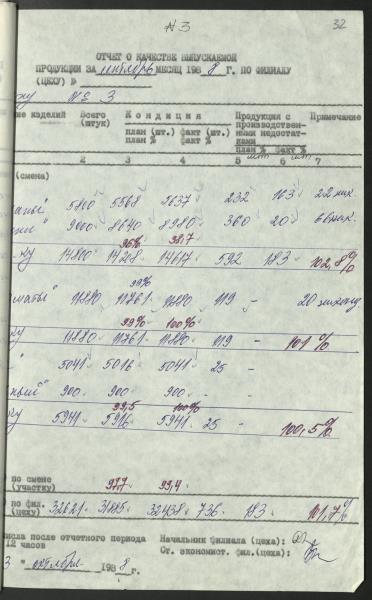 N 3
32
ОТЧЕТ О КАЧЕСТВЕ ВЫПУСКАЕМОЙ
ПРОДУКЦИИ ЗА сентябрь МЕСЯЦ 1988 Г. ПО ФИЛИАЛУ
(ЦЕХУ) №
ху № 3
ие изделий Всего (штук) Кондиция план (шт.) план % факт (шт.) факт % Продукция с производственными недостатками план % факт % Примечание
шт. шт.
2 3 4 5 6 7
(смена)
5800 5568 5637 232 163 22
9000 8640 8980 360 20 66
96% 98,7
ху 14800 14208 14617 592 183 102,8%
99%
11880 11761 11880 119 - 20
99% 100%
ху 11880 11761 11880 119 - 101%
" 5041 5016 5041 25 -
ный" 900 900 900 -
99,5 100%
ху 5941 5916 5941 25 - 100,5%
по смене (участку) 97,7 99,4
по фил. (цеху) 32621 31885 32438 736 183 101,7%
исла после отчетного периода
12 часов
Начальник филиала (цеха):
Ст. экономист. фил.(цеха):
3 " октября 1988 г.